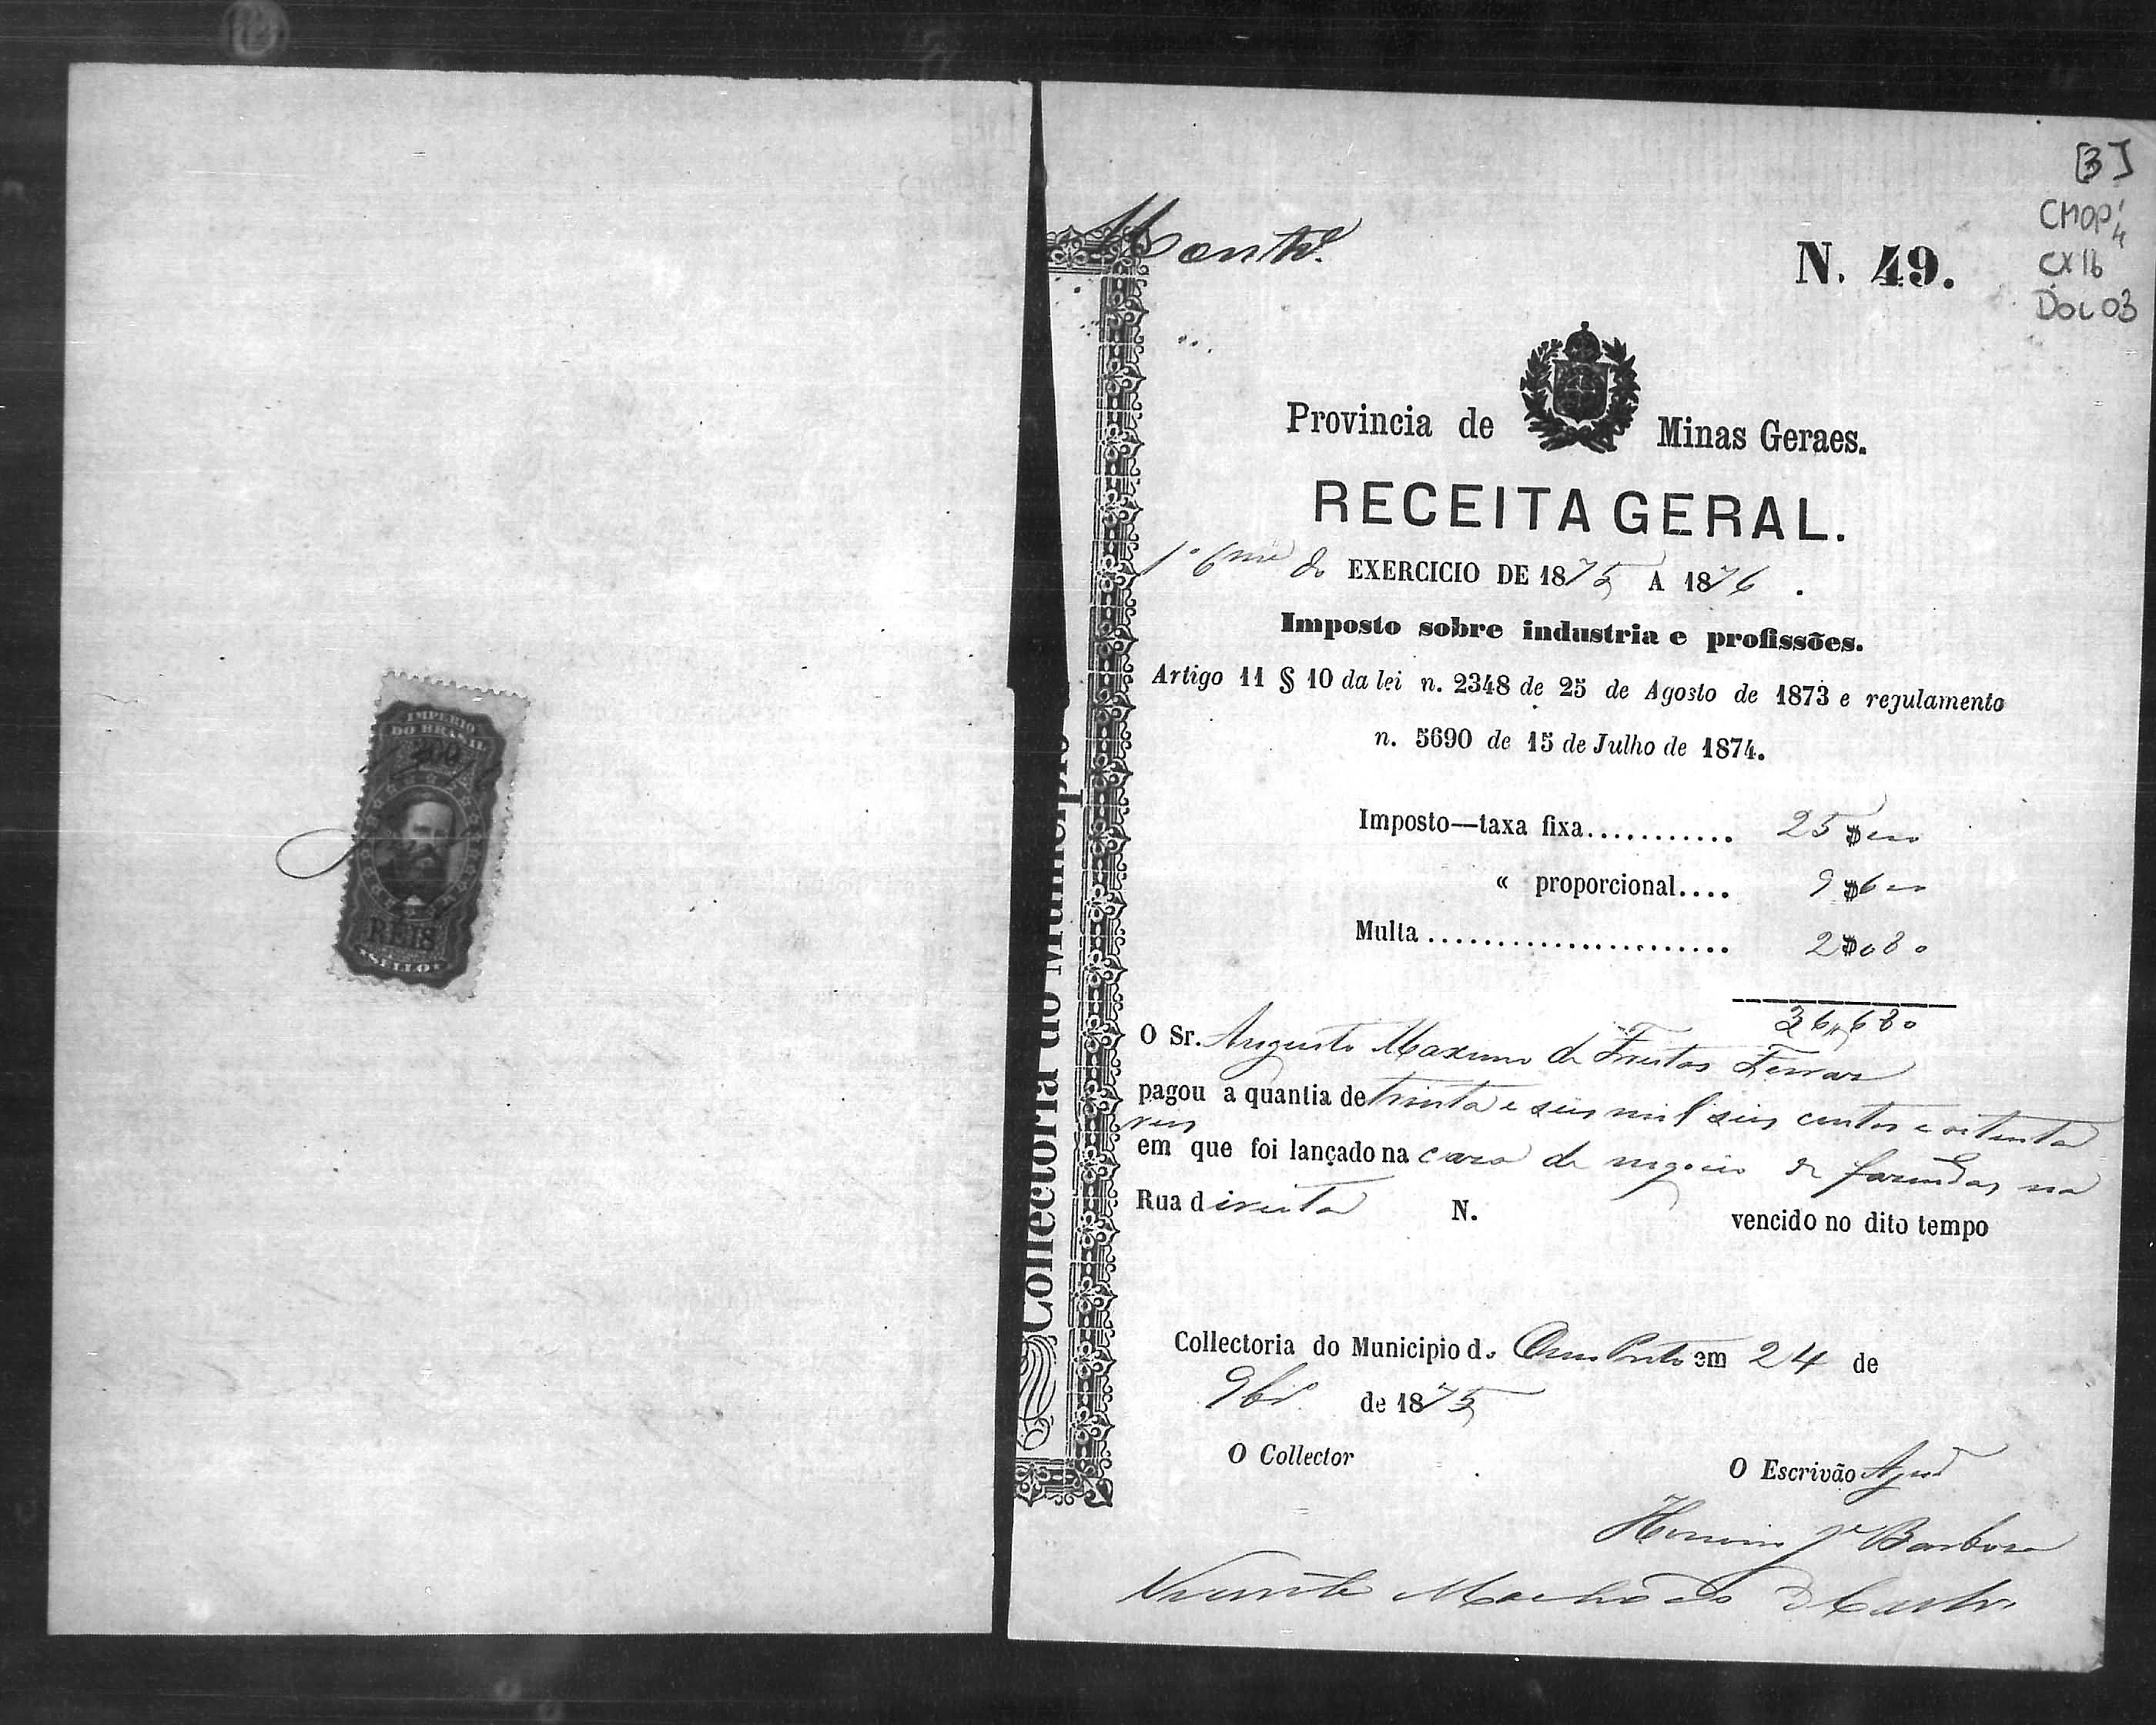 IMPERIO
DO BRASIL
200
REIS
SELLO
[3]
CMOP
CX 16
DOC 03
N. 49.
Provincia de Minas Geraes.
RECEITA GERAL.
1º 6me do EXERCICIO DE 1875 A 1876.
Imposto sobre industria e profissões.
Artigo 11 § 10 da lei n. 2348 de 25 de Agosto de 1873 e regulamento
n. 5690 de 15 de Julho de 1874.
Imposto—taxa fixa........... 25$000
« proporcional.... 9$600
Multa...................... 2$080
36,,680
O Sr. Augusto Maximo de Freitas Ferraz
pagou a quantia de trinta e seis mil seis centos e oitenta
reis
em que foi lançado na casa de negocio de fazendas na
Rua direita N. vencido no dito tempo
Collectoria do Municipio de Ouro Preto em 24 de
9br. de 1875
O Collector
O Escrivão
Barbosa
Vicente Machado de Castro
Collectoria do Municipio